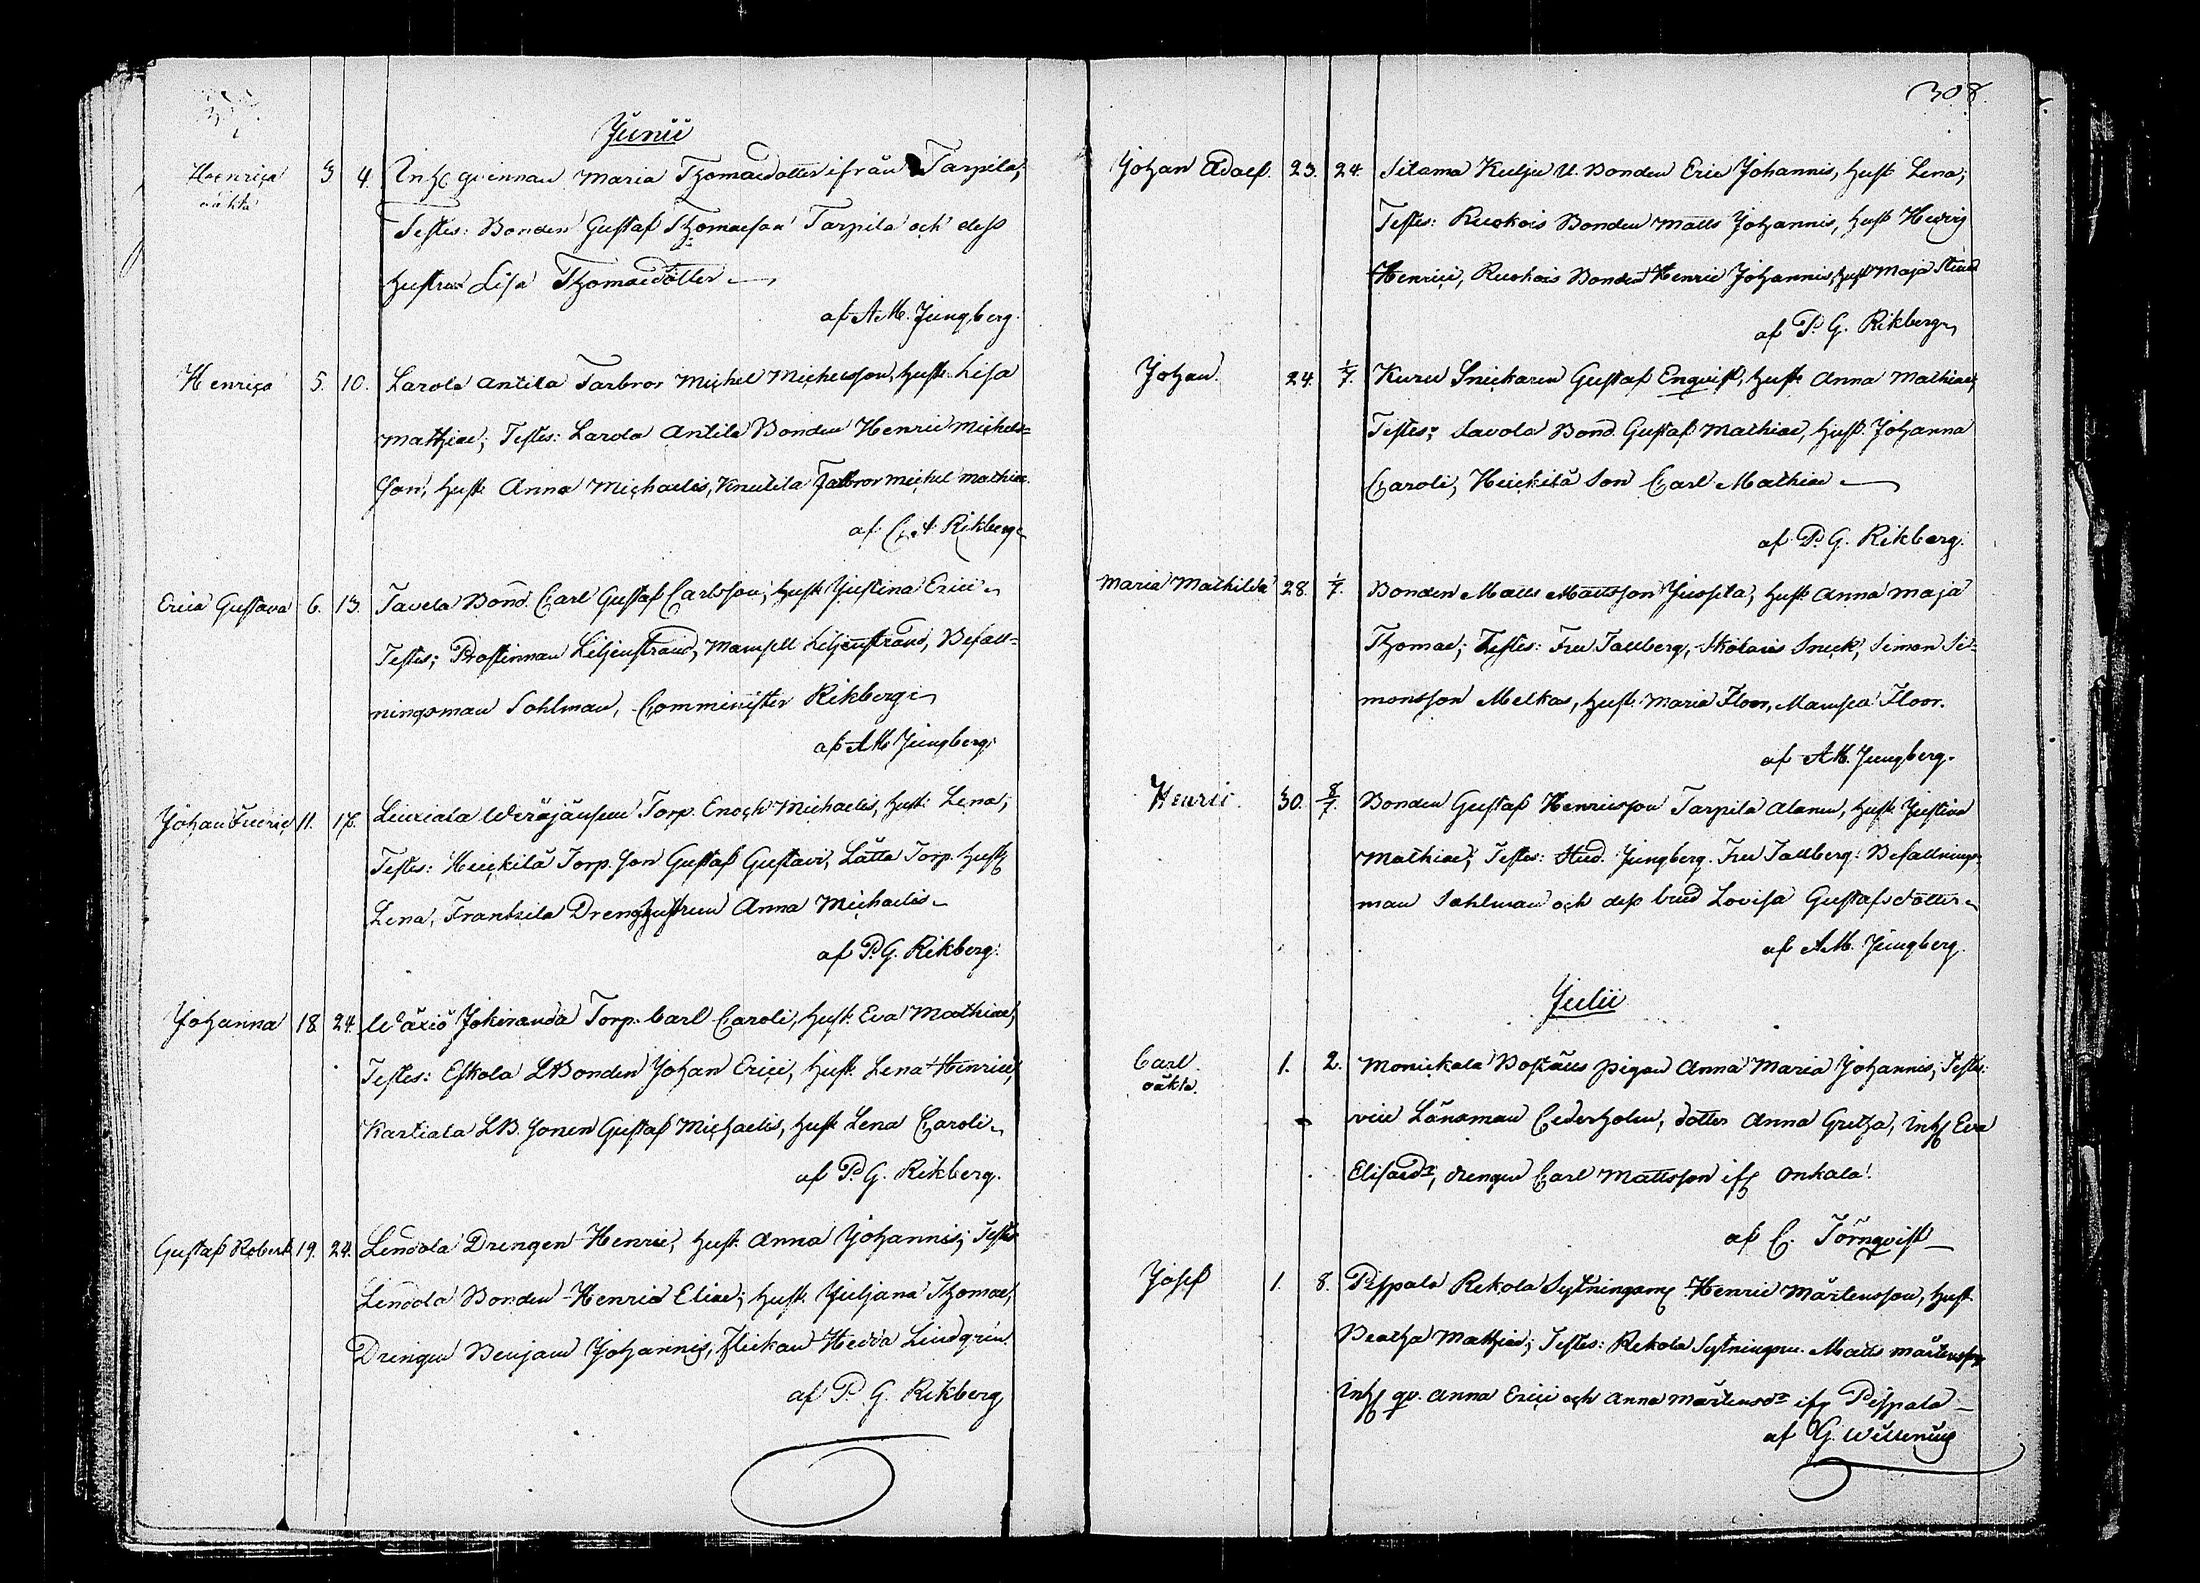 Junii
Henrica 3 4. Inh: qvinnan Maria Thomaedotter ifrån Tarpila;
oäkta
Testes: Bonden Gustaf Thomaeson Tarpila och dess
hustru Lisa Thomaedotter
af A.M. Jungberg.
Henrica 5. 10. Larola Antila Farbror Michel Michelsson, hust: Lisa
Mathiae; Testes: Larola Antila Bonden Henric Michels-
son, hust: Anna Michaelis, Knutila Farbror Michel Mathiae
af C. A. Rikberg
Erica Gustava 6. 13. Tavela Bond. Carl Gustaf Carlsson, hust: Justina Erici
Testes; Prostinnan Liljenstrand, Mamsell Liljenstrand, Befall-
ningsman Sohlman, Comminister Rikberg
af A.M. Jungberg.
Johan 11. 17. Torp. Enoch Michaelis, hust: Lena;
Testes: Heickilä Torp. Son Gustaf Gustavi, Lätta Torp. hust:
Lena, Frantsila Dreng hustrun Anna Michaelis
af P.G. Rikberg.
Johanna 18. 24. Wäxiö Jokiranda Torp. Carl Caroli, hust: Eva Mathiae;
Testes: Eskola LBonden Johan Erici, hust: Lena Henrici,
Kartiala LB. Sonen Gustaf Michaelis, hust: Lena Caroli
af P.G. Rikberg.
Gustaf Robert 19. 24. Lendola Drengen Henric, hust: Anna Johannis; Testes
Lendola Bonden Henric Eliae; hust: Juljana Thomae,
Drengen Benjam Johannis, flickan Hedda Lindgrén.
af P. G. Rikberg
308.
Johan Adolf. 23. 24 Silama Kulju U. Bonden Eric Johannis, hust: Lena;
Testes: Ruokois Bonden Matts Johannis, hust: Hedvig
Henrici, Ruokois Bonden Henric Johannis, hust: Maja Stina
af P. G. Rikberg
Johan. 24. 1/7. Kuru Snickaren Gustaf Enqvist, hust: Anna Mathiae;
Testes: Savola Bond. Gustaf Mathiae, hust: Johanna
Caroli, Heickilä Son Carl Mathiae
af P. G. Rikberg.
Maria Mathilda 28. 1/7. Bonden Matts Mattsson Juospila, hust: Anna Maja
Thomae; Testes: Fru Tallberg, Snick, Simon Si-
monsson Melkas, hust: Maria Floor, Mamsel Floor.
af A.M. Jungberg.
Henric. 30. 8/7. Bonden Gustaf Henricsson Tarpila Alanen, hust: Justina
Mathiae; Testes: Stud. Jungberg. Fru Tallberg: Befallnings-
man Sohlman och dess brud Lovisa Gustafsdotter
af A.M. Jungberg.
Julii
Carl. 1. 2. Monickala Boställs pigan Anna Maria Johannis; Testes:
oäkta.
vice Länsman Cederholm, dotter Anna Gretha, Inh: Eva
Elisaedr, drengen Carl Mattsson ifr: Onkala.
af C. Törnqvist
Josef 1. 8. Pispala Rekola Sytningsm: Henric Mårtensson, hust:
Beatha Mathiae; Testes: Rekola Sytningsm. Matts Mårtensson
Inh: qv. Anna Erici och Anna Mårtensdr ifr: Pispala
af G. Willenius